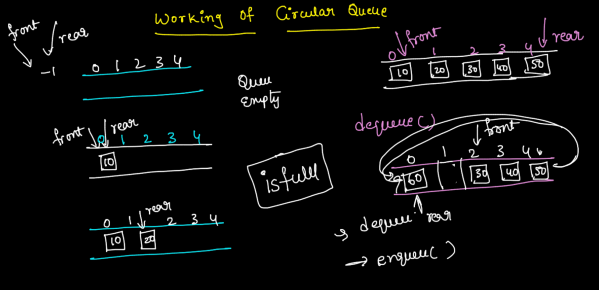 Working of Circular Queue
front rear
-1 0 1 2 3 4
Queu
Empty
front rear
0 1 2 3 4
10
rear
0 1 2 3 4
10 20
isfull
front rear
0 1 2 3 4
10 20 30 40 50
dequeue()
front
0 1 2 3 4
60 30 40 50
rear
→ dequeue
→ enqueue()